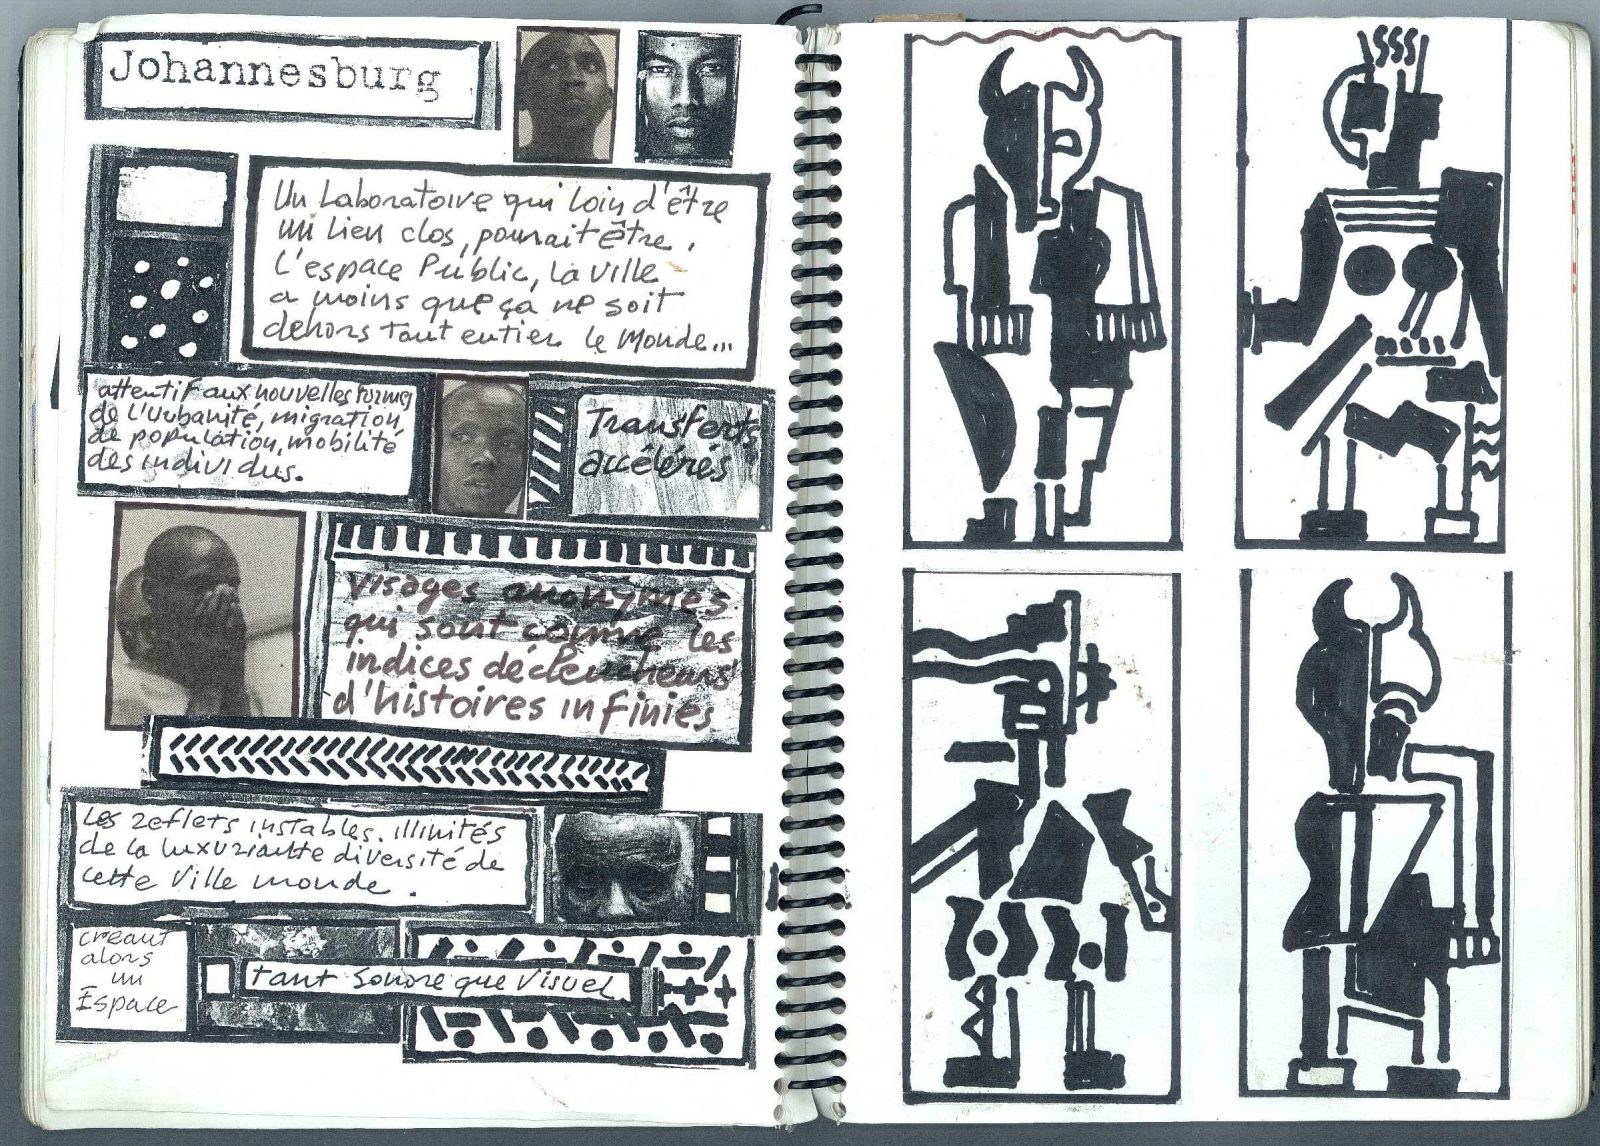 Johannesburg
Un Laboratoire qui loin d'être
un lieu clos, pourrait être.
L'espace Public, la ville
a moins que ça ne soit
dehors tout entier le Monde...
attentif aux nouvelles formes
de l'Urbanité, migration,
de population, mobilité
des individus.
Transferts
accélérés
visages anonymes
qui sont comme les
indices déclencheurs
d'histoires infinies
Les reflets instables. illimités
de la luxuriante diversité de
cette Ville monde.
créant
alors
un
Espace
tant Sonore que Visuel